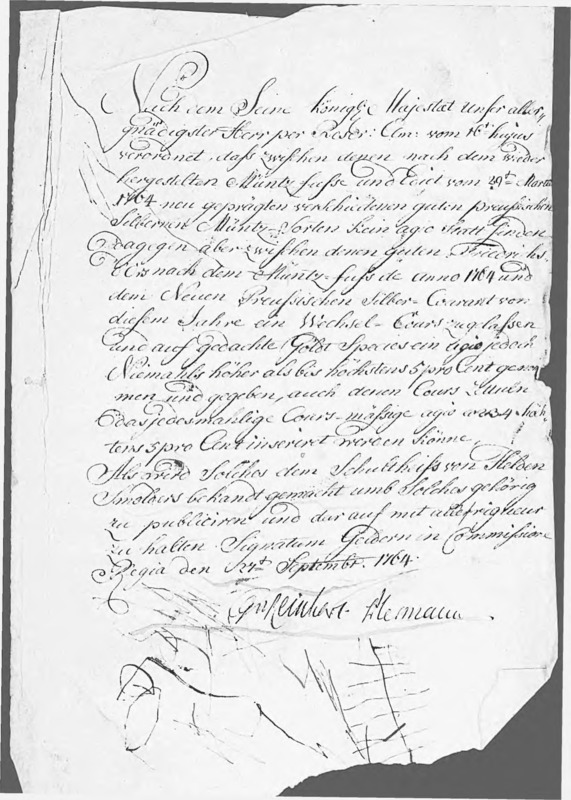 Nach dem Seine Königl: Majestæt Unser aller-
gnädigster Herr per Rescr: Clm: vom 16t hujus
verordnet, dass zwischen denen nach dem wieder
hergestelten Müntz fusse und Edict vom 29t Martii
1764 neu geprägten verschiedenen guten Preussischen
Silbernen Müntz-Sorten kein agio statt finden
dagegen aber zwischen denen guten Friedrichs
nach dem Müntz-fuss de anno 1764 und
dem Neuen Preussischen Silber-Courant von
diesem Jahre ein Wechsel-Cours zugelassen
und auf gedachte Goldt Species ein agio jedoch
Niemahls höher als bis höchstens 5 pro Cent genom
men und gegeben, auch denen Cours Zettulen
das jedesmahlige Cours-mässige agio a 3. 4 höchs
tens 5 pro Cent inseriret werden könne,
Als wird Solches dem Schultheiss von Helden
Smolders bekandt gemacht umb Solches gehörig
zu publiciren und dar auf mit aller rigueur
zu halten. Signatum Geldern in Commissione
Regia den 27t Septembr. 1764.